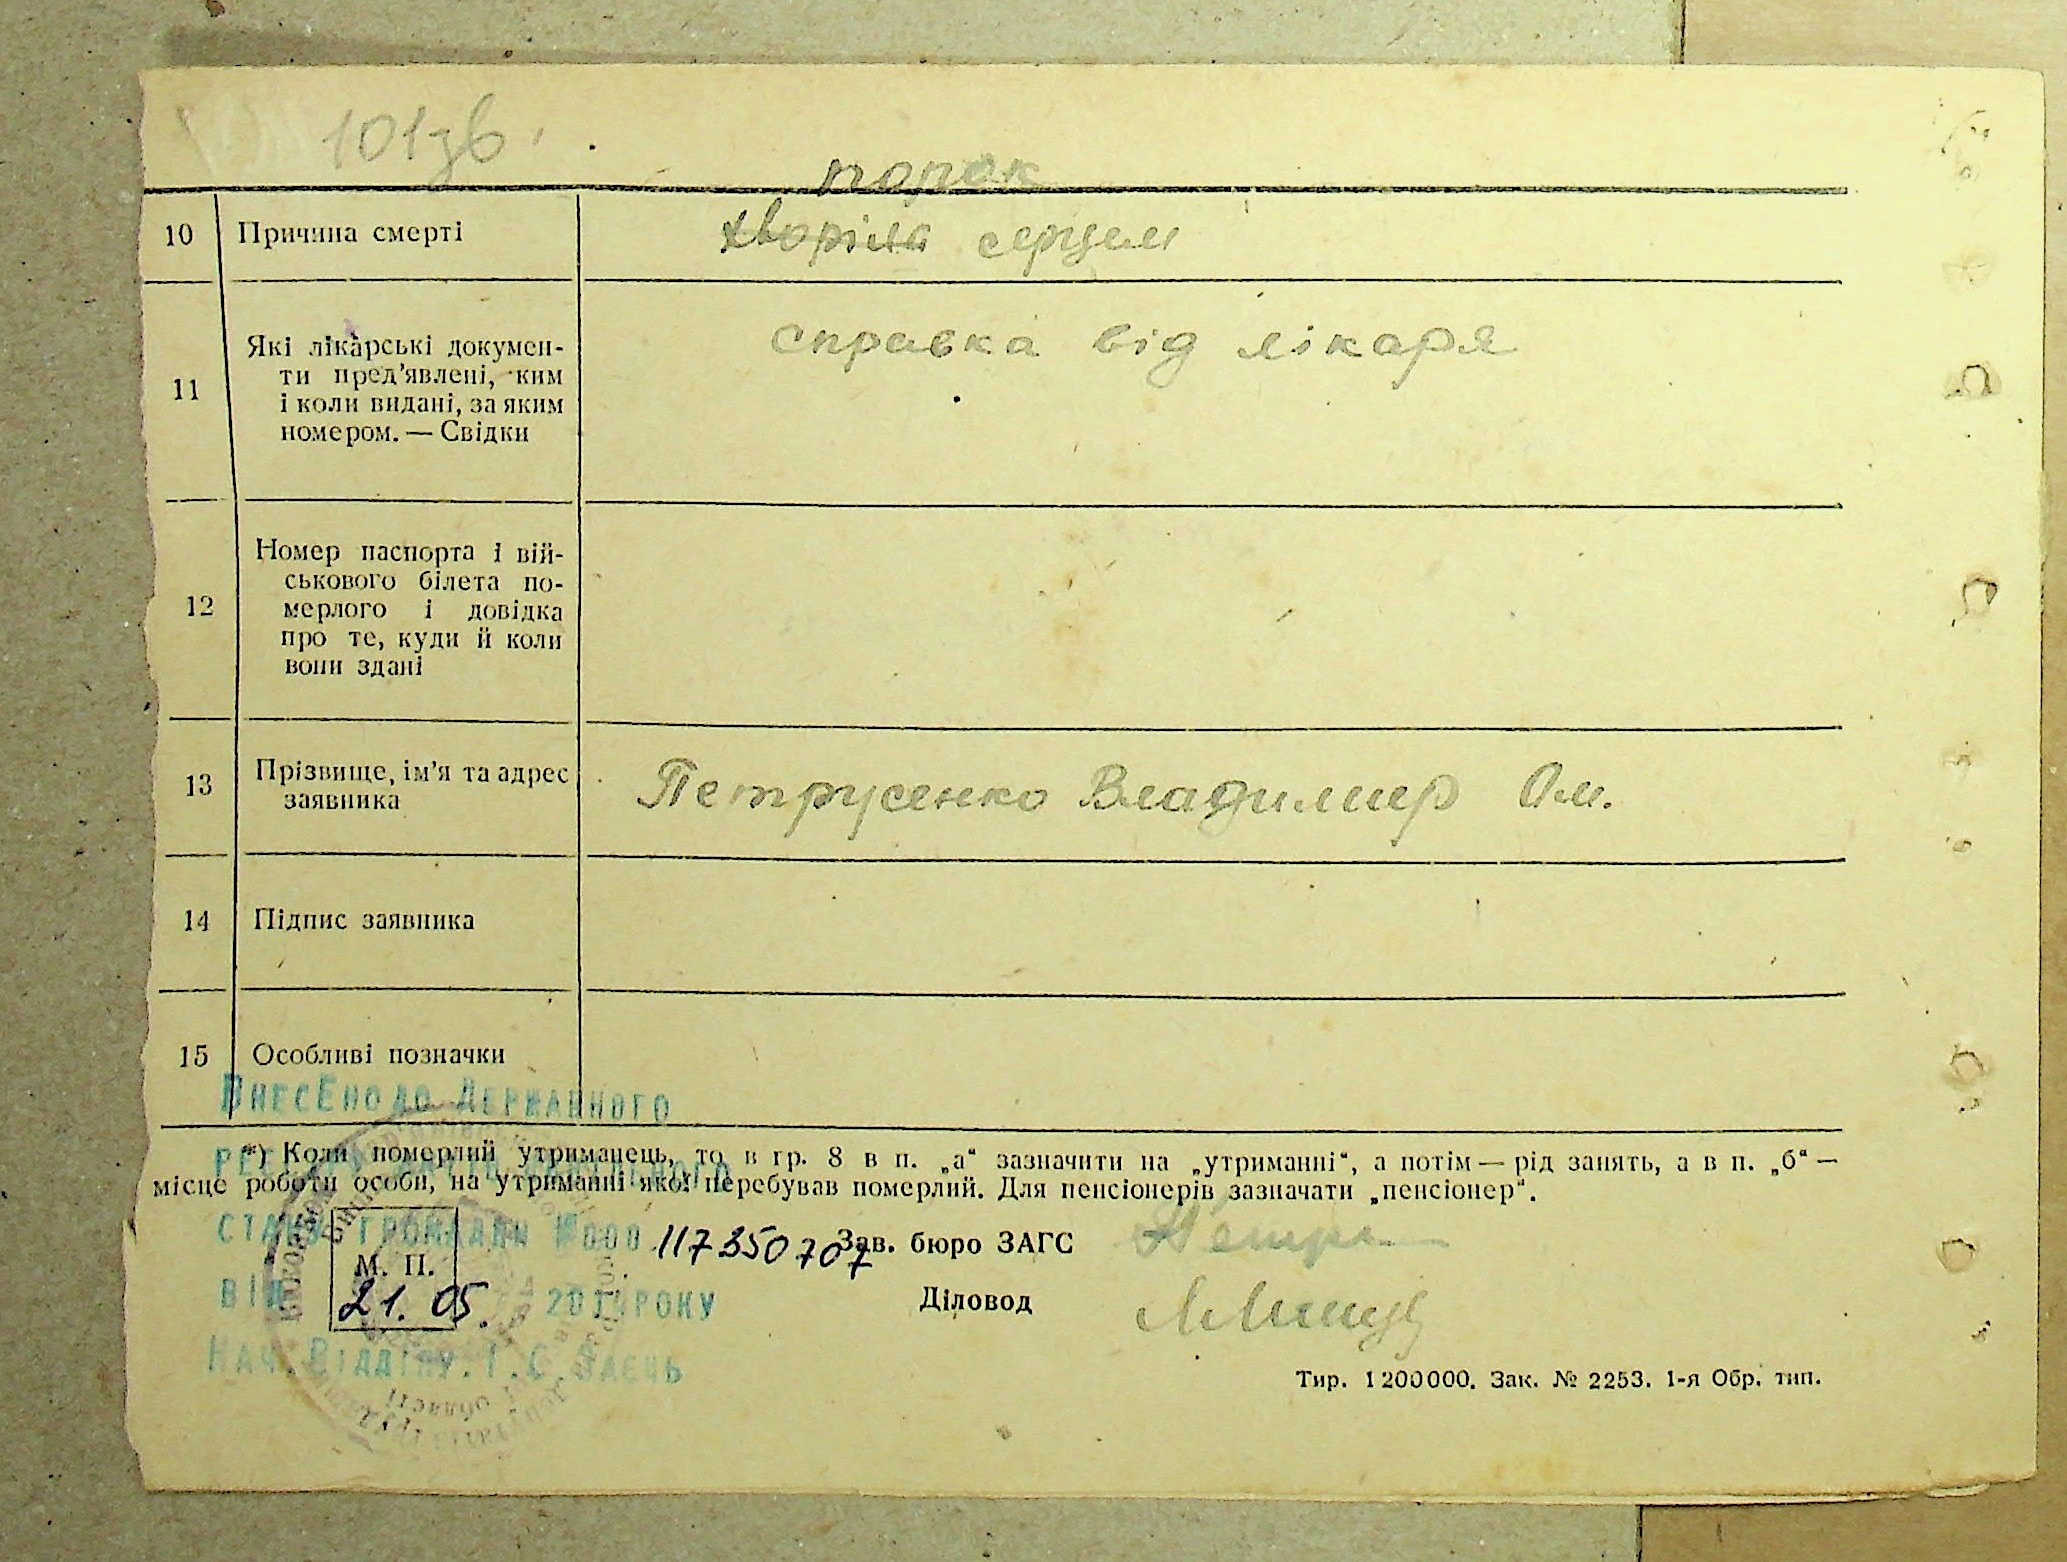 101зв.
порок
10 Причина смерті хворіла серцем
11 Які лікарські докумен-
ти пред'явлені, ким
і коли видані, за яким
номером. — Свідки
справка від лікаря
12 Номер паспорта і вій-
ськового білета по-
мерлого і довідка
про те, куди й коли
вони здані
13 Прізвище, ім'я та адрес
заявника
Петрусенко Владимиер Ом.
14 Підпис заявника
15 Особливі позначки
Внесено до Державного
*) Коли померлий утриманець, то в гр. 8 в п. „а“ зазначити на „утриманні“, а потім — рід занять, а в п. „б“ —
місце роботи особи, на утриманні якої перебував померлий. Для пенсіонерів зазначати „пенсіонер“.
стану громадян №000 117350707 Зав. бюро ЗАГС
М. П.
від 21.05. РОКУ
Діловод
Нач. Відділу. І. С. Заєць
Тир. 1200000. Зак. № 2253. 1-я Обр. тип.